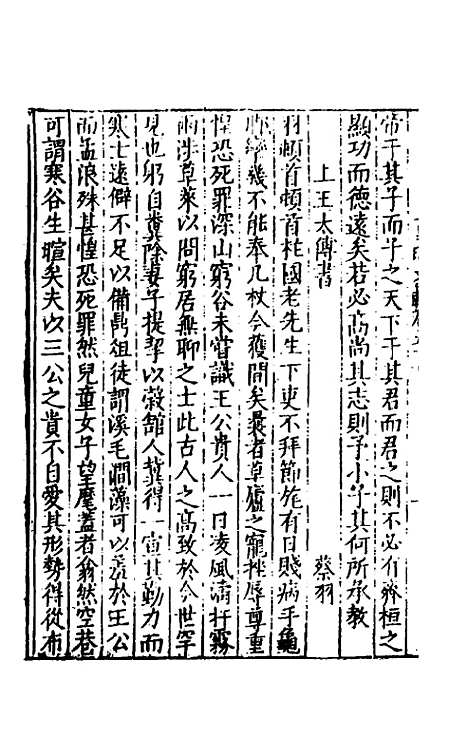 帝干其子而子之天下干其君而君之則不必有齊桓之
顯功而德遠矣若必高尚其志則予小子其何所承教
上王太傅書 蔡羽
羽頓首頓首柱國老先生下吏不拜節旄有日賤病手龜
脚攣幾不能奉几杖今獲間矣曩者草廬之寵挫辱尊重
惶恐死罪深山窮谷未嘗識王公貴人一日凌風濤扞霧
雨涉草萊以問窮居無聊之士此古人之高致於今世罕
見也躬自糞除妻子提挈以穀館人冀得一宿其勤力而
寒士遠僻不足以備鼎俎徒謂溪毛澗藻可以羞於王公
而孟浪殊甚惶恐死罪然兒童女子望麾蓋者翕然空巷
可謂寒谷生暄矣夫以三公之貴不自愛其形勢得從布